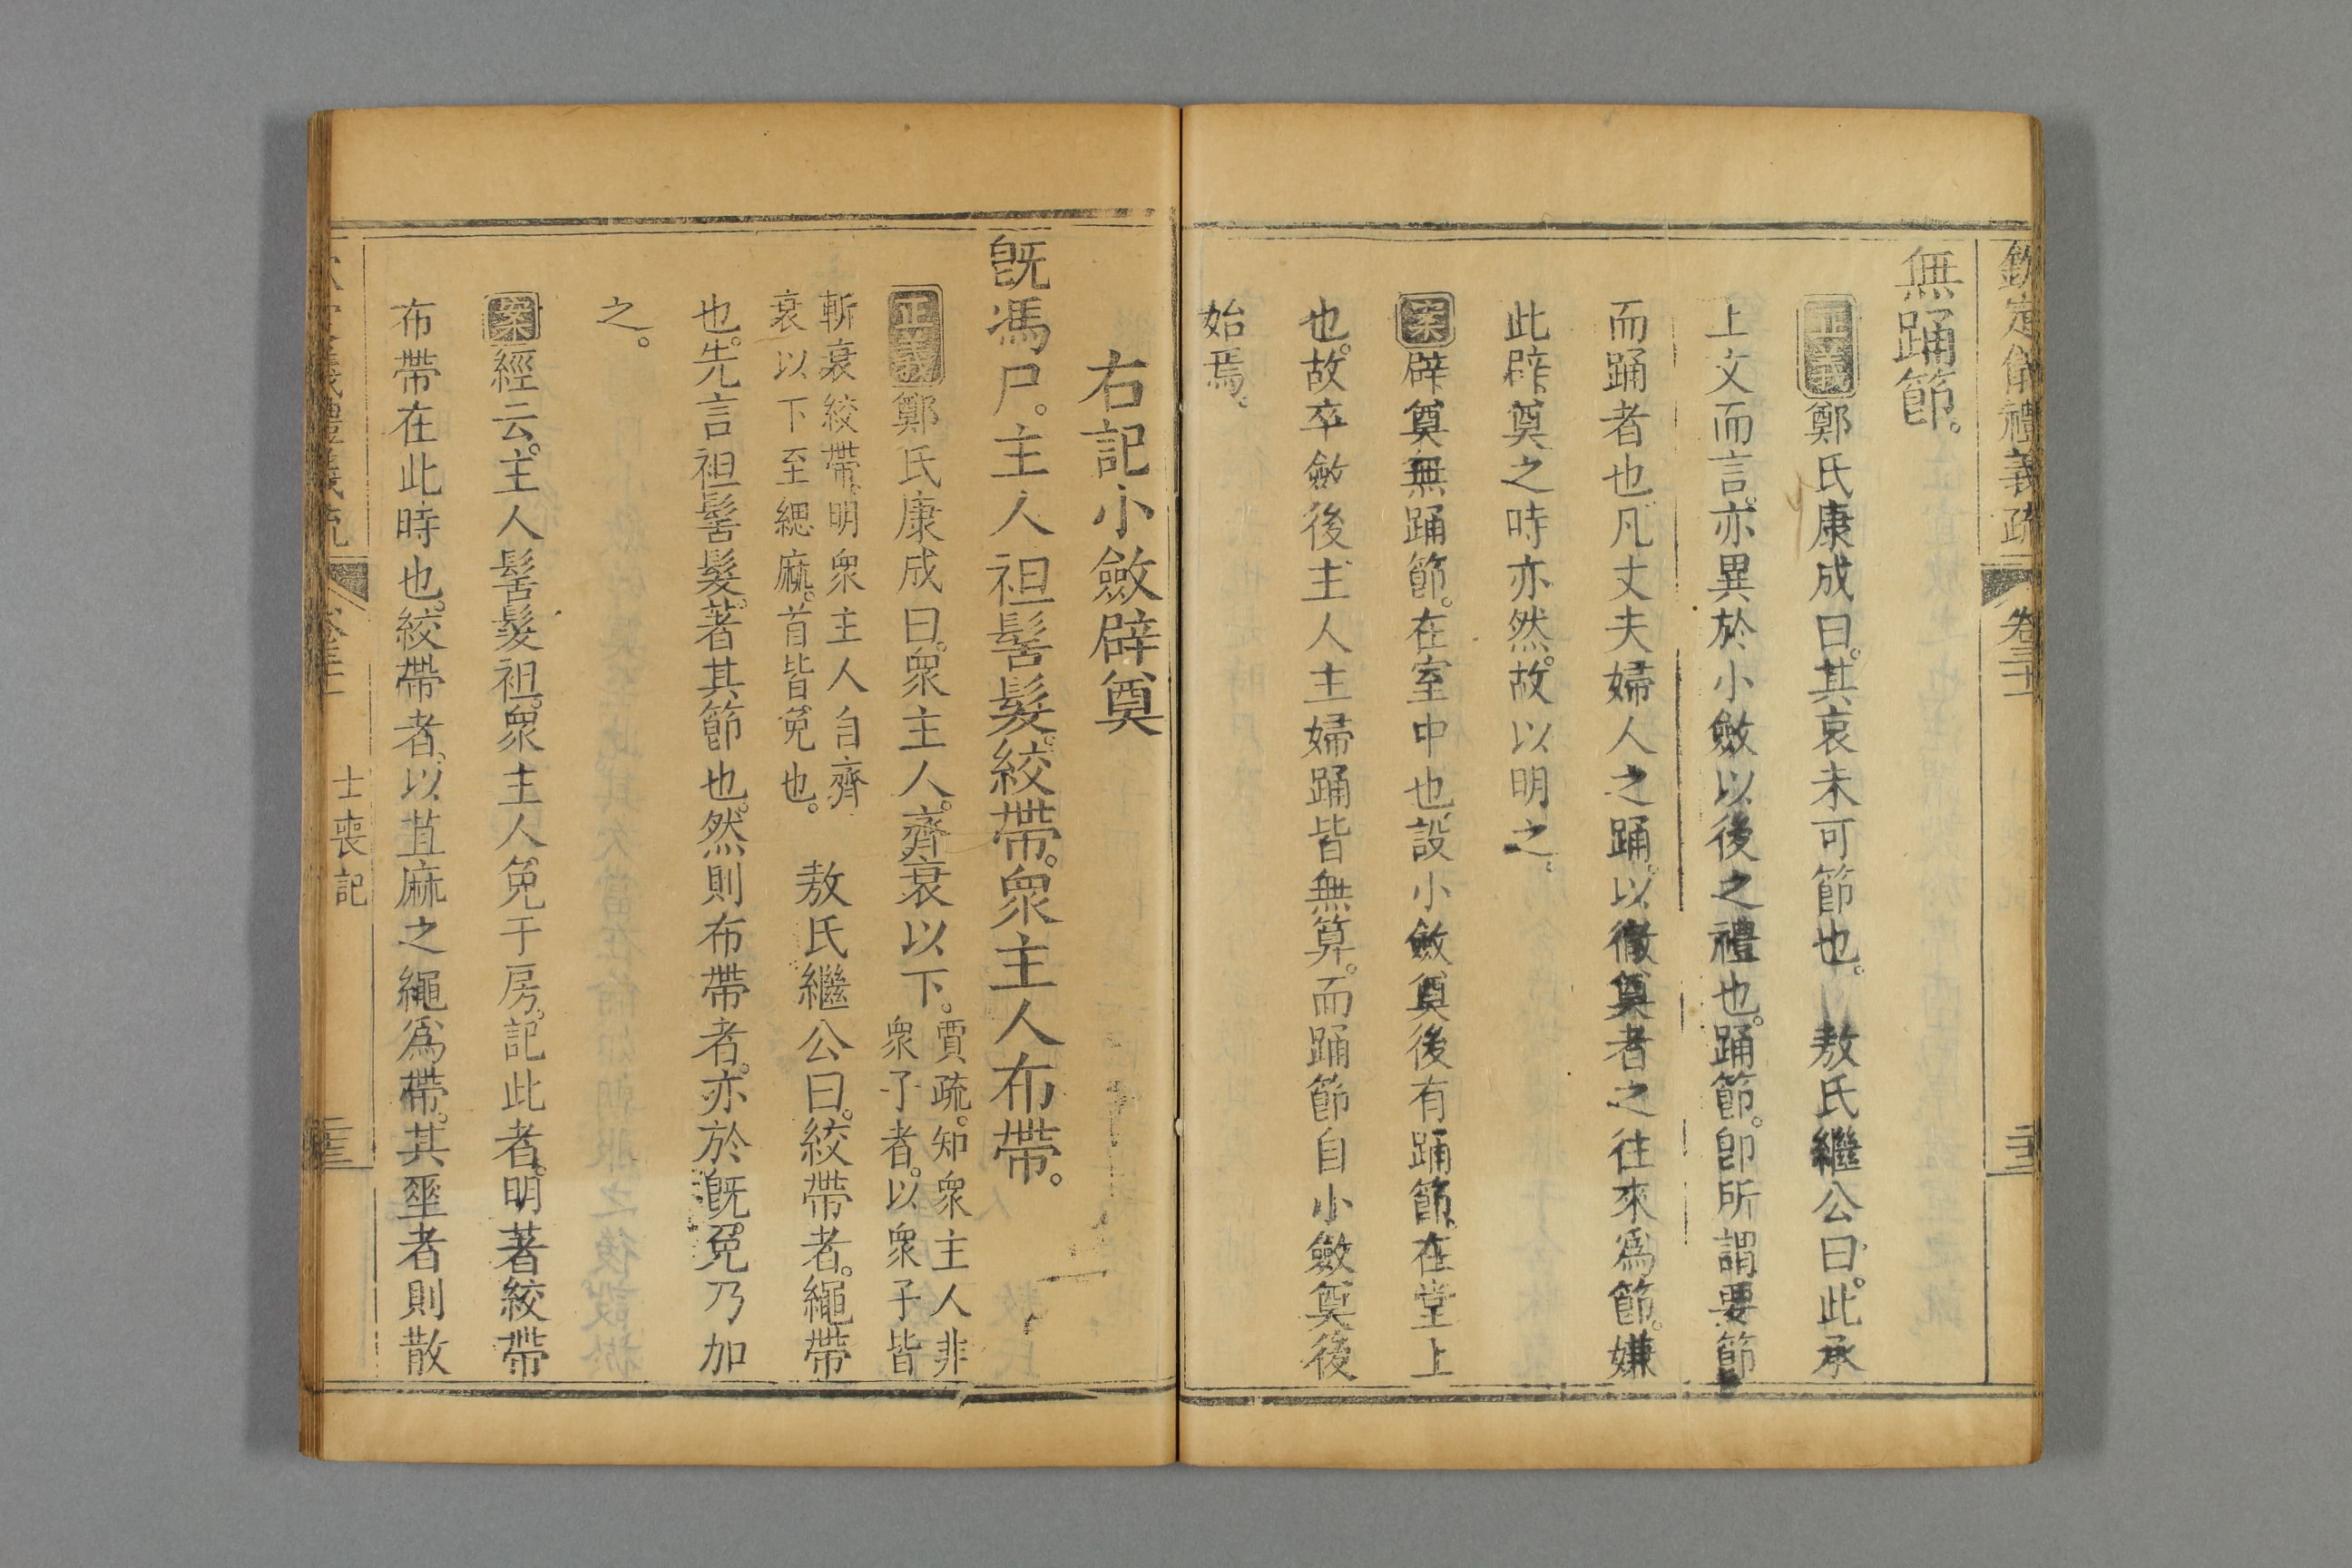 欽定儀禮義疏 卷三十一
無踊節。
正義鄭氏康成曰。其哀未可節也。 敖氏繼公曰。此承
上文而言。亦異於小斂以後之禮也。踊節。卽所謂要節
而踊者也。凡丈夫婦人之踊。以徹奠者之往來爲節。嫌
此辟奠之時亦然。故以明之。
案辟奠無踊節。在室中也。設小斂奠後有踊節。在堂上
也。故卒斂後。主人主婦踊皆無算。而踊節自小斂奠後
始焉。
右記小斂辟奠
旣馮尸。主人袒髺髮。絞帶。眾主人布帶。
正義鄭氏康成曰。眾主人。齊衰以下。賈疏。知眾主人非眾子者。以眾子皆
斬衰絞帶。明眾主人自齊衰以下至緦麻。首皆免也。 敖氏繼公曰。絞帶者。繩帶
也。先言袒髺髮。著其節也。然則布帶者。亦於旣免乃加
之。
案經云。主人髺髮袒。眾主人免于房。記此者。明著絞帶
布帶在此時也。絞帶者。以苴麻之繩爲帶。其垂者則散
士喪記